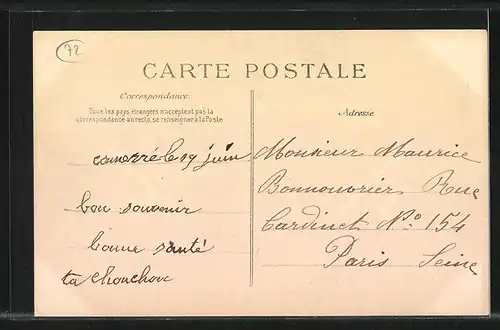 72
CARTE POSTALE
Correspondance
Tous les pays étrangers n'acceptent pas la
correspondance au recto, se renseigner à la Poste
Adresse
le 19 juin
bon souvenir
bonne santé
ta chouchou
Monsieur Maurice
Bonnouvrier Rue
Cardinet No 154
Paris Seine